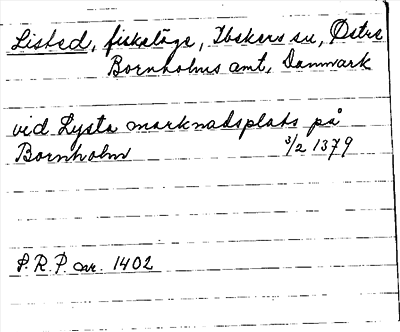 Listed, fiskeläge, Ibskers sn, Østre
Bornholms amt, Danmark
vid Lysta marknadsplats på
Bornholm 3/2 1379
S.R.P. nr. 1402